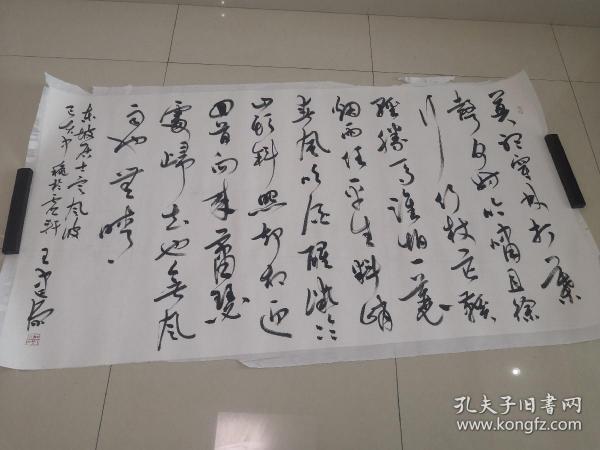 莫听穿林打葉
聲何妨吟嘯且徐
行竹杖芒鞋
輕勝馬誰怕一蓑
烟雨任平生料峭
春風吹酒醒微冷
山頭斜照却相迎
回首向来蕭瑟
處歸去也無風
雨也無晴
东坡居士定风波
己亥年秋於
王
孔夫子旧书网
www.kongfz.com